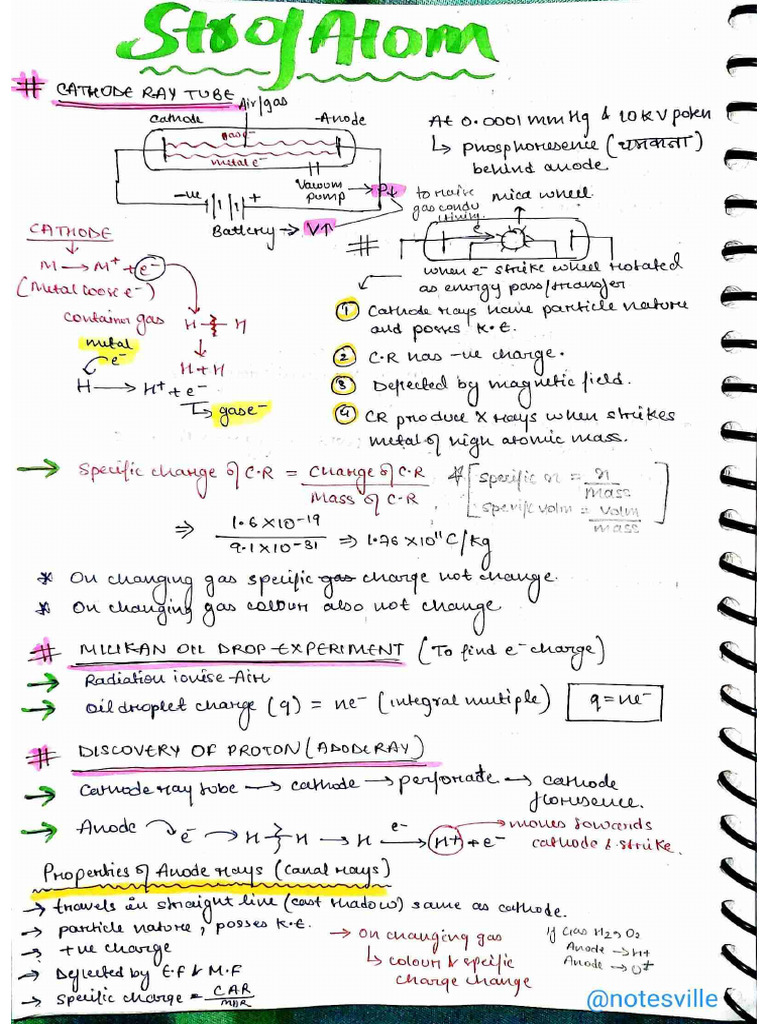 Str of Atom
# CATHODE RAY TUBE
Air/gas
Cathode
Anode
gas e-
metal e-
Vacuum pump → P↓
-ve
+
Battery → V↑
At 0.0001 mm Hg & 10 KV poten
↳ phosphoresence (चमकना)
behind anode
to make
gas condu
mica wheel
#
when e- strike wheel rotated
as energy pass/transfer
① Cathode rays have particle nature
and posses K.E.
② C.R has -ve charge.
③ Deflected by magnetic field.
④ CR produce X rays when strikes
metal of high atomic mass.
CATHODE
M → M+ + e-
(Metal loose e-)
container gas H H
H + H
metal
e-
H → H+ + e-
gas e-
→ Specific charge of C.R = Charge of C.R / Mass of C.R
* [specific n = n/mass
specific volm = volm/mass]
⇒ 1.6×10-19 / 9.1×10-31 ⇒ 1.76×1011 C/kg
* On changing gas specific gas charge not change.
* On changing gas colour also not change
# MILIKAN OIL DROP-EXPERIMENT (To find e- charge)
→ Radiation ionise Air
→ Oil droplet charge (q) = ne- (integral multiple) q = ne-
# DISCOVERY OF PROTON (ANODE RAY)
→ Cathode ray tube → cathode → perforate → cathode
floresence.
→ Anode e- → H H → H e-→ H+ + e-
→ moves towards
cathode & strike.
Properties of Anode rays (canal rays)
→ travels in straight line (cast shadow) same as cathode.
→ particle nature, posses K.E.
→ +ve charge
→ Deflected by E.F & M.F
→ specific charge =
→ On changing gas
↳ colour & specific
charge change
if Gas H2 O2
Anode → H+
Anode → O+
@notesville